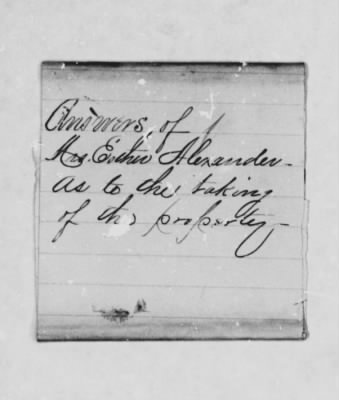 Answers, of
Mrs. Esther Alexander -
as to the taking
of the property -